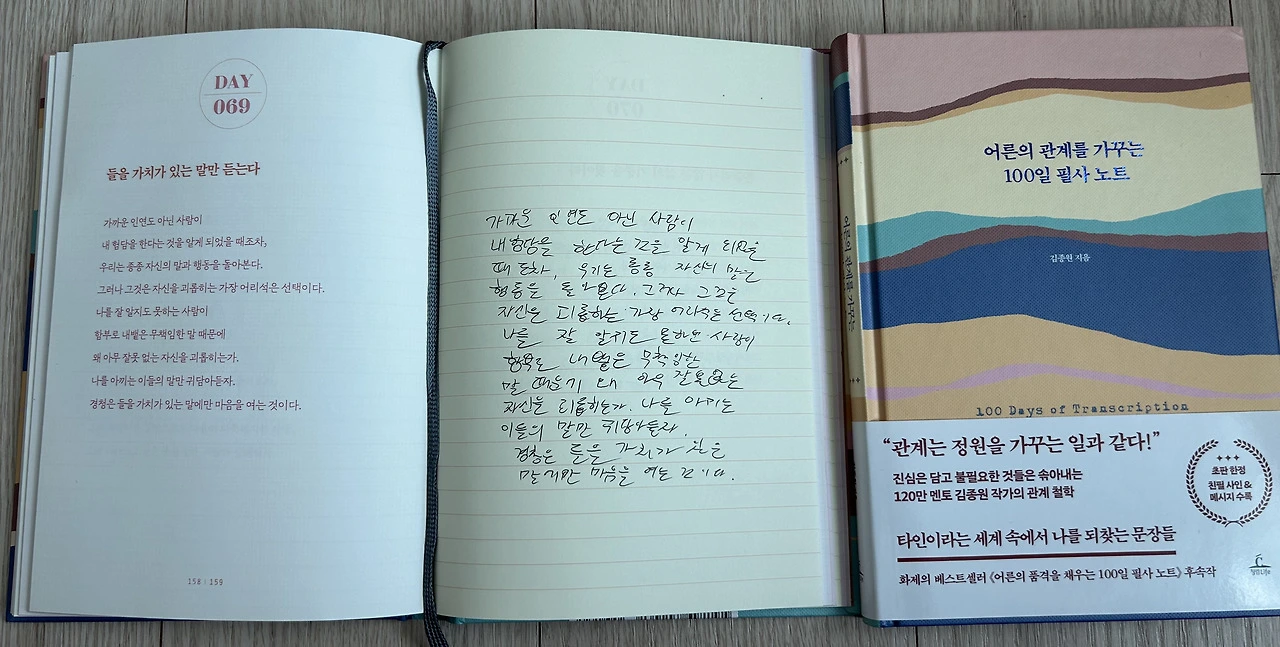 DAY
069
들을 가치가 있는 말만 듣는다
가까운 인연도 아닌 사람이
내 험담을 한다는 것을 알게 되었을 때조차,
우리는 종종 자신의 말과 행동을 돌아본다.
그러나 그것은 자신을 괴롭히는 가장 어리석은 선택이다.
나를 잘 알지도 못하는 사람이
함부로 내뱉은 무책임한 말 때문에
왜 아무 잘못 없는 자신을 괴롭히는가.
나를 아끼는 이들의 말만 귀담아듣자.
경청은 들을 가치가 있는 말에만 마음을 여는 것이다.
158 | 159
가까운 인연도 아닌 사람이
내 험담을 한다는 것을 알게 되었을
때 조차, 우리는 종종 자신의 말과
행동을 돌아본다. 그러나 그것은
자신을 괴롭히는 가장 어리석은 선택이다.
나를 잘 알지도 못하는 사람이
함부로 내뱉은 무책임한
말 때문에 왜 아무 잘못없는
자신을 괴롭히는가. 나를 아끼는
이들의 말만 귀담아듣자.
경청은 들을 가치가 있는
말에만 마음을 여는 것이다.
어른의 관계를 가꾸는
100일 필사 노트
김종원 지음
100 Days of Transcription
“관계는 정원을 가꾸는 일과 같다!”
진심은 담고 불필요한 것들은 솎아내는
120만 멘토 김종원 작가의 관계 철학
초판 한정
친필 사인 &
메시지 수록
타인이라는 세계 속에서 나를 되찾는 문장들
화제의 베스트셀러 《어른의 품격을 채우는 100일 필사 노트》 후속작
청림Life
어른의 관계를 가꾸는